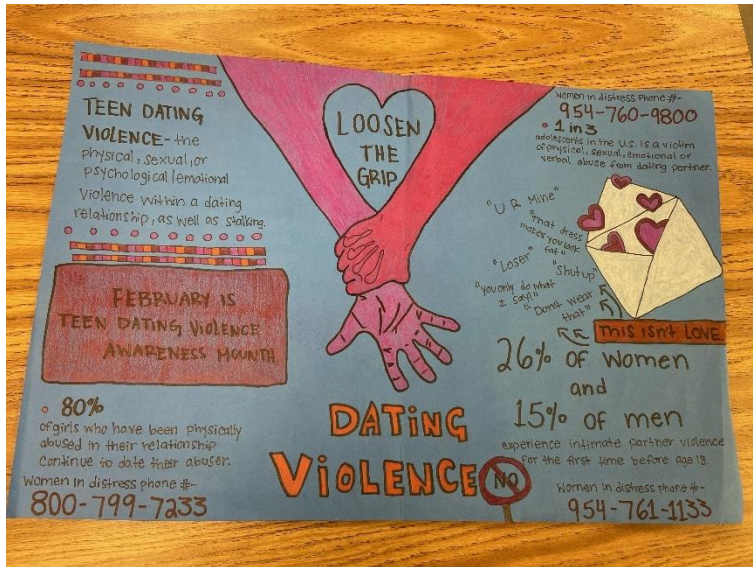 TEEN DATING
VIOLENCE- the
physical, sexual, or
psychological/emotional
Violence within a dating
relationship, as well as stalking.
FEBRUARY IS
TEEN DATING VIOLENCE
AWARENESS MOUNTH
80%
of girls who have been physically
abused in their relationship
continue to date their abuser.
Women in distress phone #-
800-799-7233
LOOSEN
THE
GRIP
DATING
VIOLENCE
NO
Women in distress phone #-
954-760-9800
1 in 3
adolescents in the U.S. is a victim
of physical, sexual, emotional or
verbal abuse from dating partner.
"U R Mine"
"That dress
makes you look
fat"
"Loser"
"Shut up"
"you only do what
I say!"
"Don't wear
that"
THIS ISN'T LOVE
26% OF Women
and
15% of men
experience intimate partner violence
for the first time before age 18.
Women in distress phone #-
954-761-1133